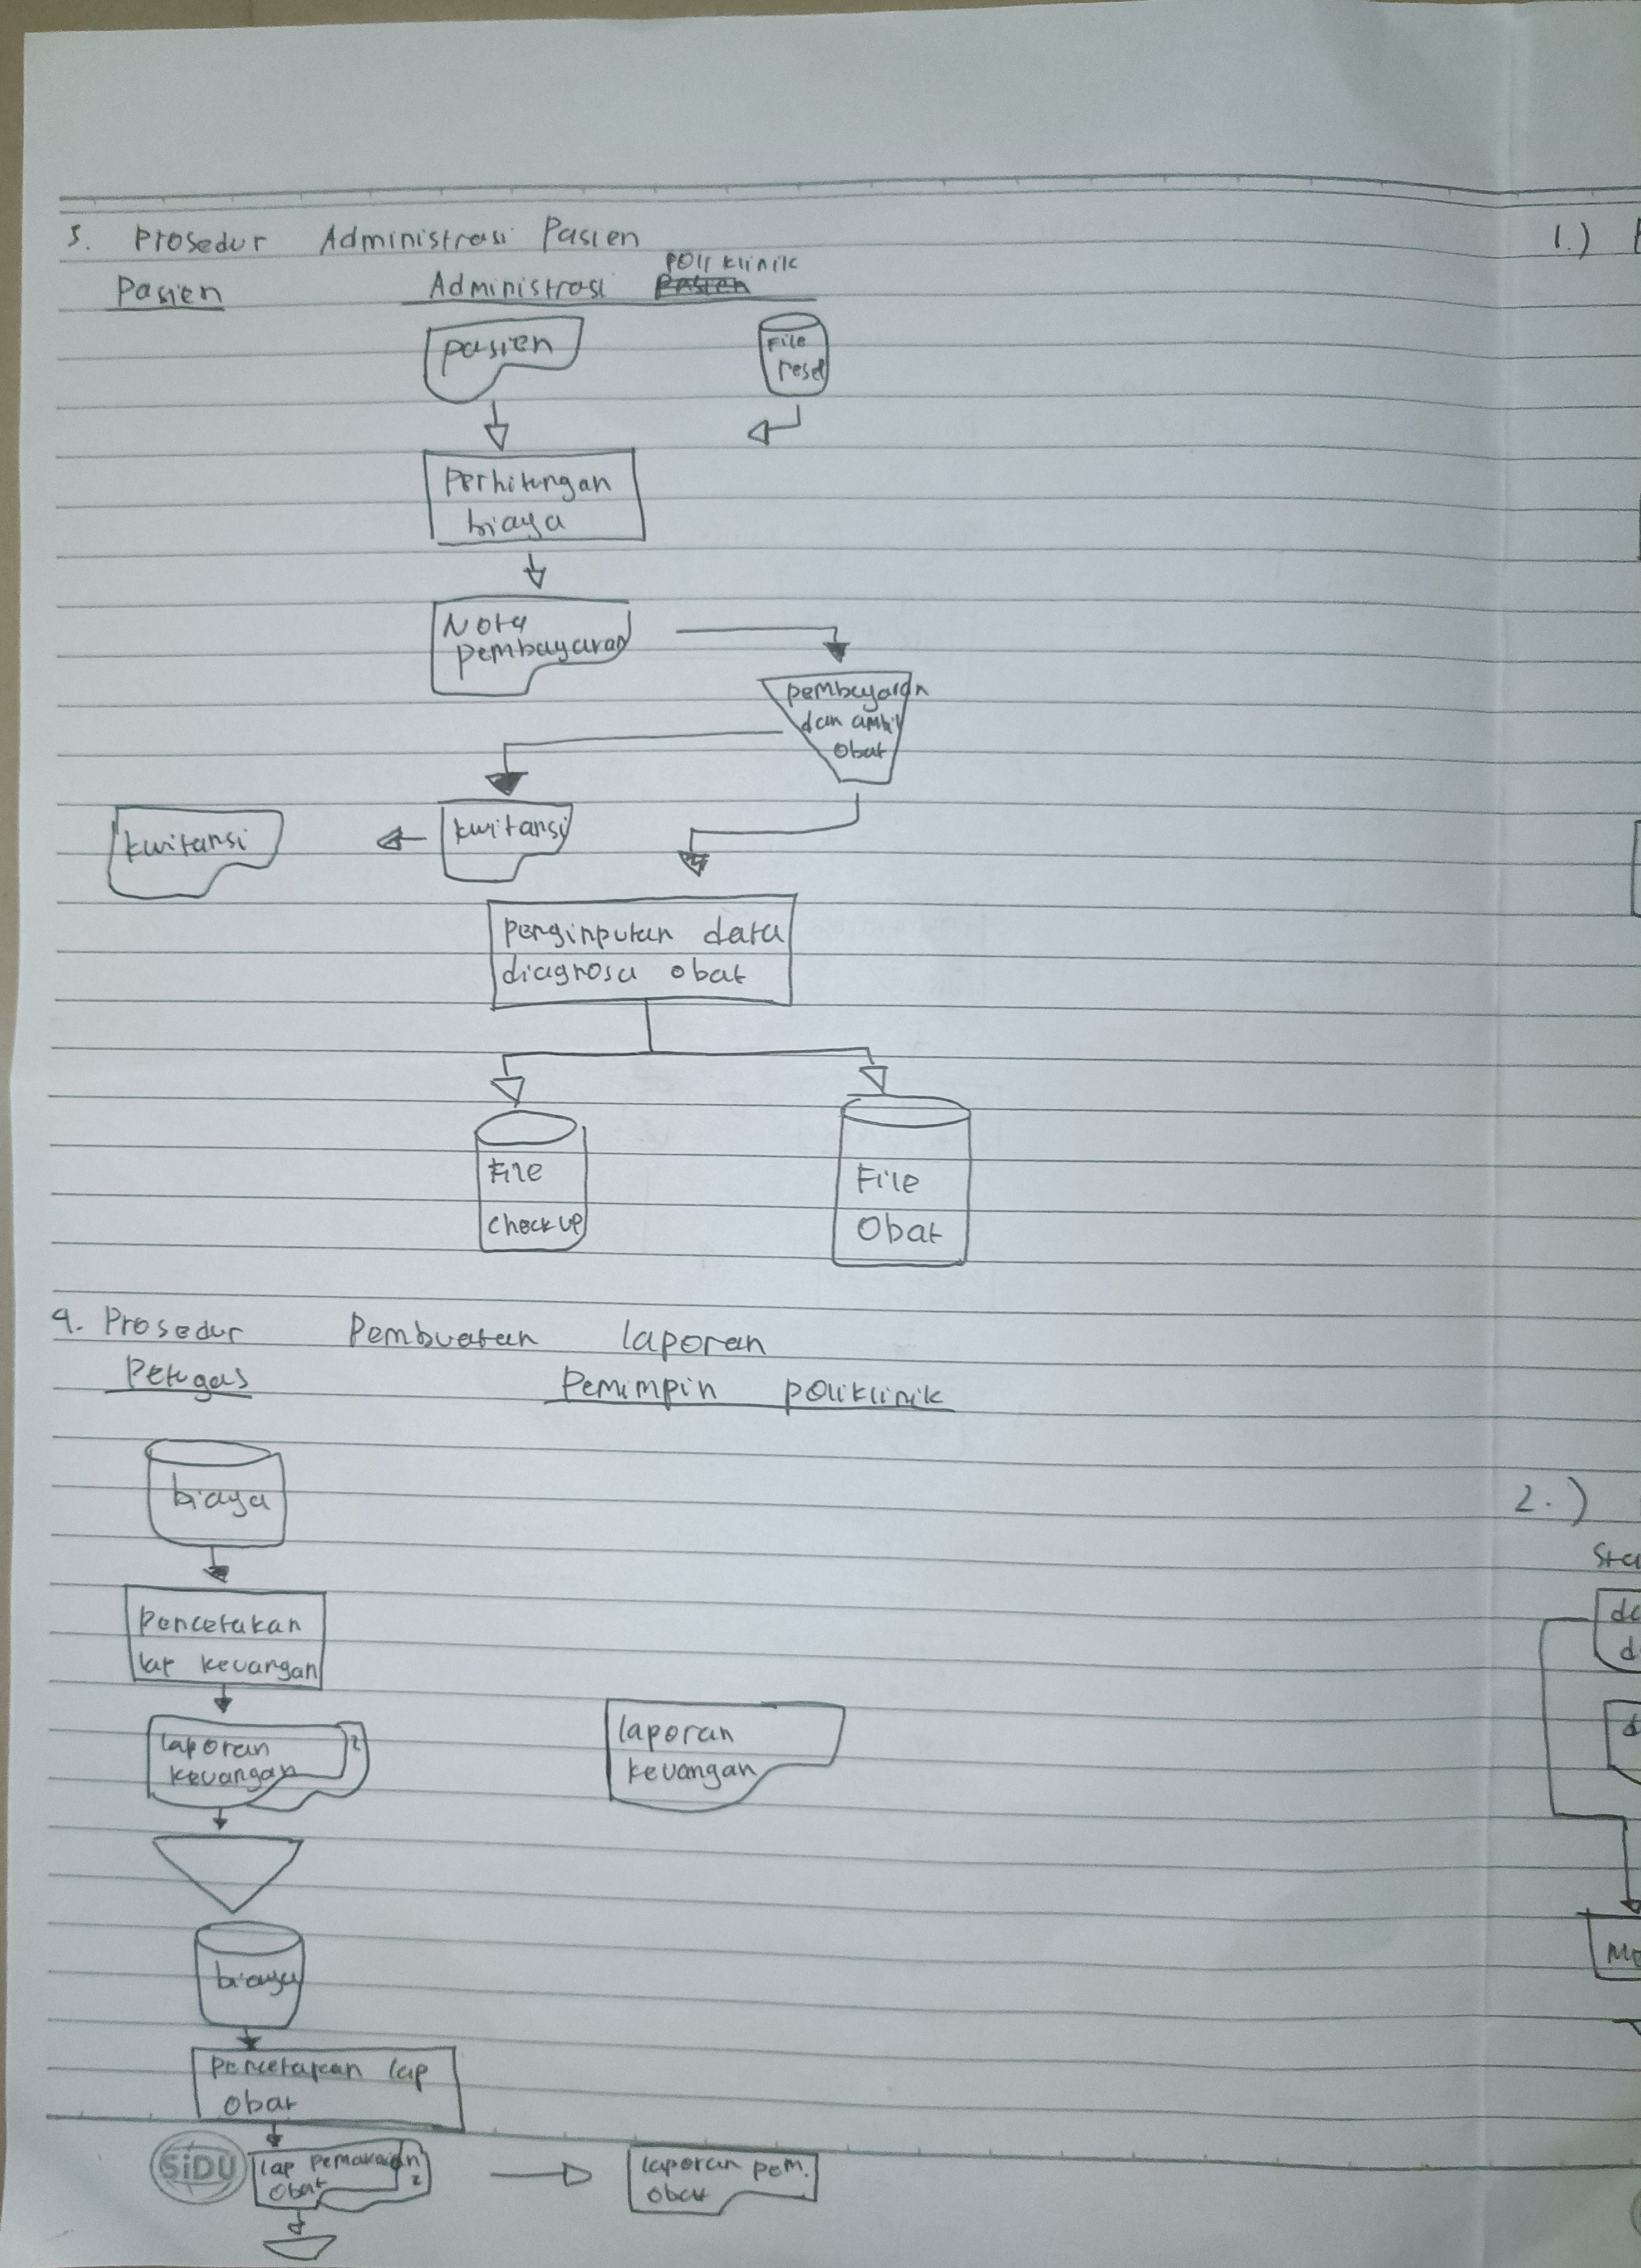 3. Prosedur Administrasi Pasien
Pasien
Administrasi Poli klinik
pasien
File
resep
Perhitungan
biaya
Nota
pembayaran
pembayaran
dan ambil
obat
kwitansi
kwitansi
penginputan data
diagnosa obat
File
checkup
File
Obat
4. Prosedur Pembuatan laporan
Petugas
Pemimpin poliklinik
biaya
pencetakan
lap keuangan
laporan
keuangan
2
laporan
keuangan
biaya
pencetakan lap
obat
SiDU
lap pemakaian
obat
2
laporan pem.
obat
1.)
2.)
Sta
da
d
d
Me